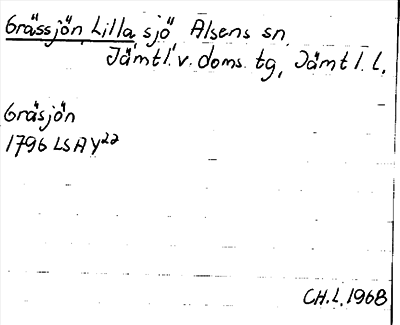 Grässjön Lilla sjö Alsens sn
Jämtl. v. doms. tg, Jämtl. l.
Gräsjön
1796 LSA Y22
CH.L. 1968